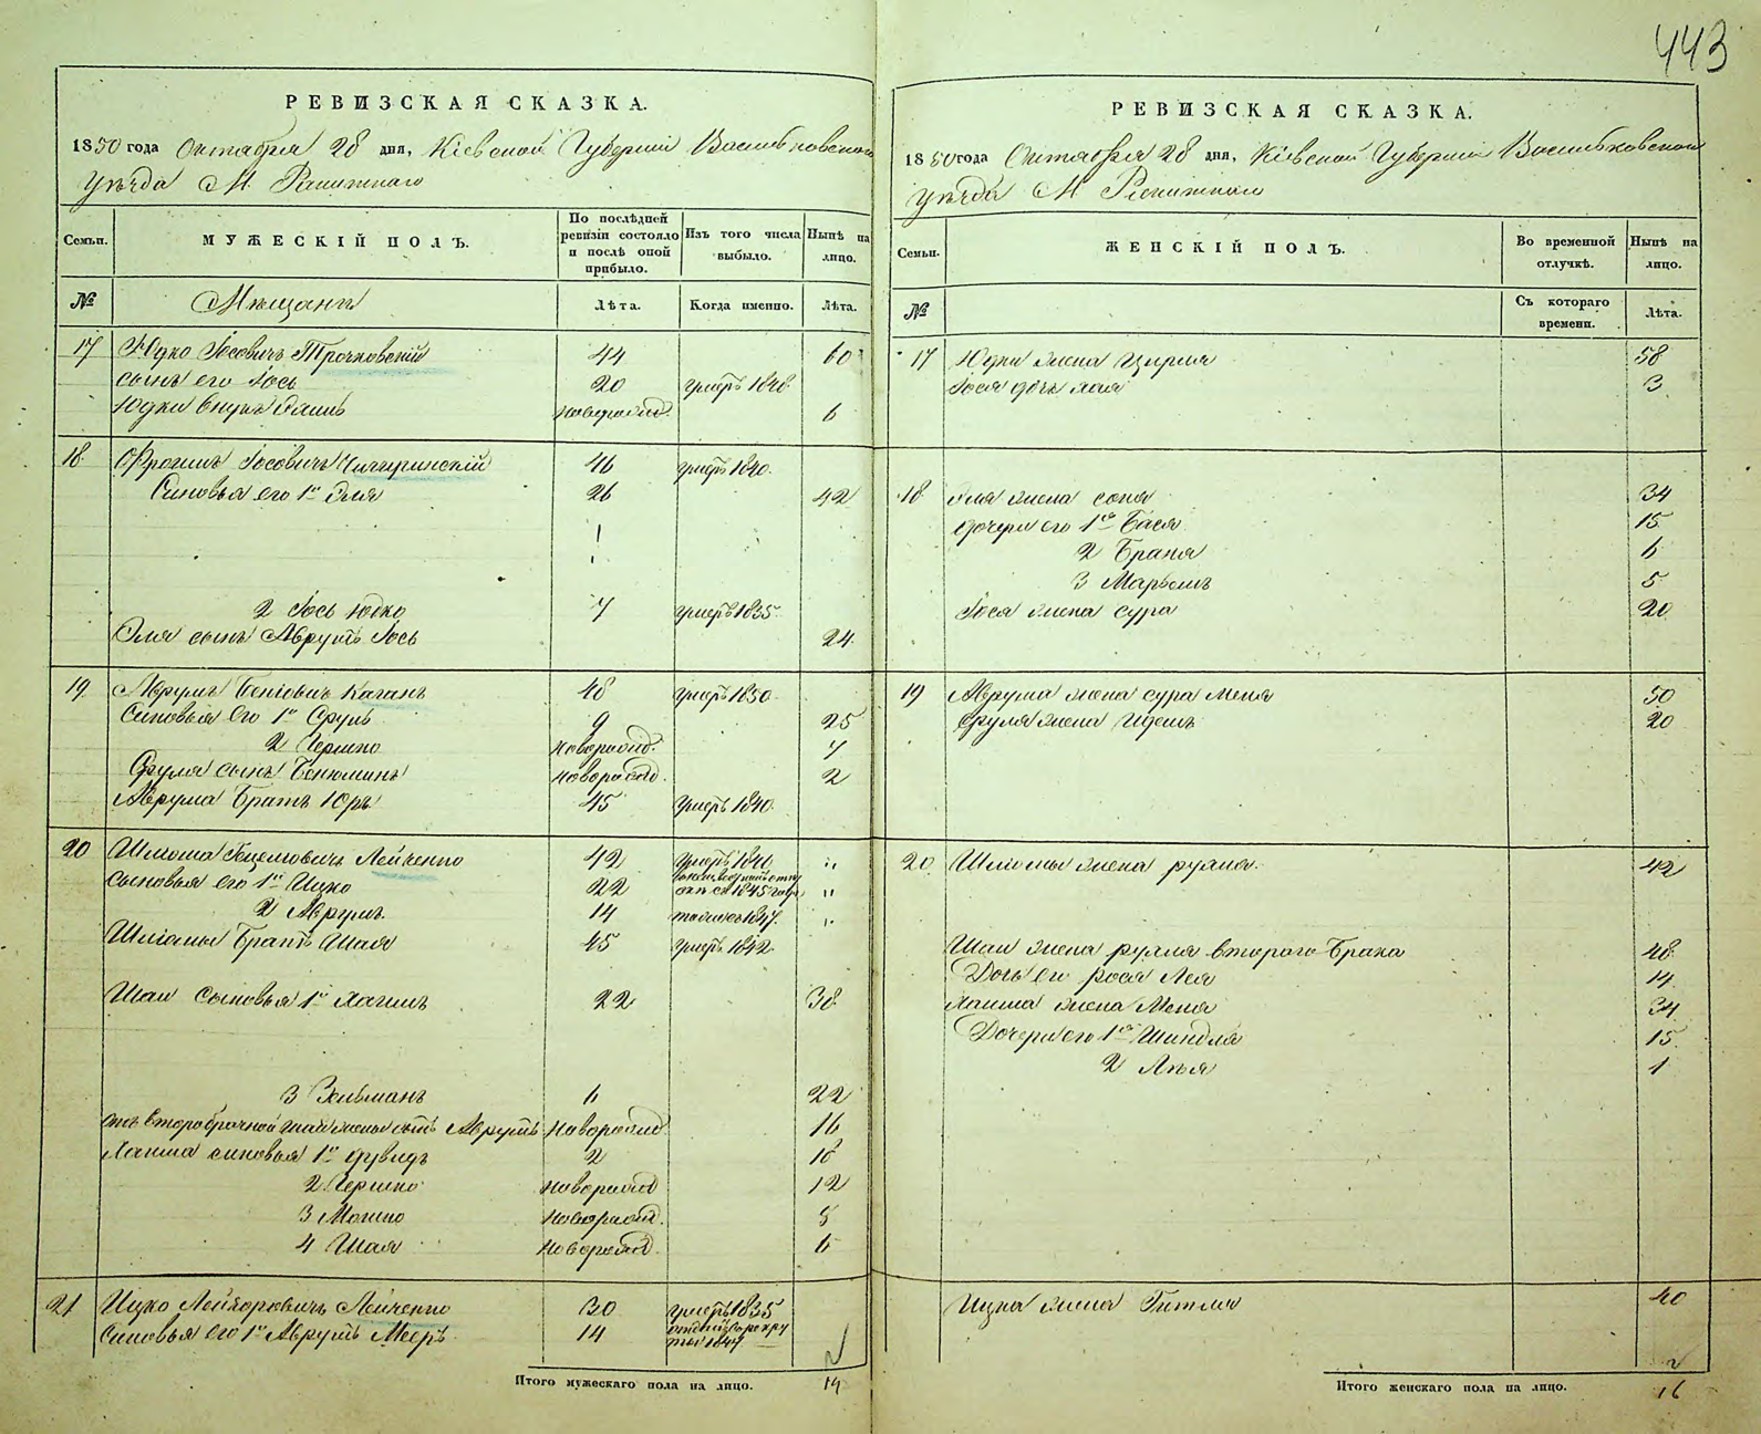 443
РЕВИЗСКАЯ СКАЗКА.
1850 года Октября 28 дня, Кіевской Губерніи Васильковскаго
Уѣзда М.
Семьи. МУЖЕСКІЙ ПОЛЪ. По послѣдней ревизіи состояло и послѣ оной прибыло. Изъ того числа выбыло. Нынѣ на лицо.
№ Мѣщанъ Лѣта. Когда именно. Лѣта.
17 Юдко Іосовичъ Трочковскій 44 60
сынъ его Іось 20 умеръ 1848
Юдки внукъ новорожд. 6
18 Фроимъ Іосовичъ Чигиринскій 46 умеръ 1840.
Синовья его 1й Эля 26 42
2 Іось Юдко 7 умеръ 1835.
Эля сынъ Аврумъ Іось 24
19 Аврумъ Беніовичъ Каганъ 48 умеръ 1850
Синовья его 1й Сруль 9 25
2 Гершко новорожд. 7
Сруля сынъ Бенюминъ новорожд. 2
Аврума Братъ 45 умеръ 1840.
20 Шліома Лейченко 42 умеръ 1846 "
сыновья его 1й Ицко 22 1845 года "
2 Аврумъ 14 1847. "
Шліомы Братъ Шая 45 умеръ 1842
Шаи Сыновья 1й Хаимъ 22 38
3 Зельманъ 6 22
отъ второбрачной Шаи жены сынъ Аврумъ Новорожд 16
Хаима синовья 1й Дувидъ 2 18
2 Гершко Новорожд 12
3 Мошко Новорожд. 8
4 Шая Новорожд. 6
21 Ицко Лейзоровичъ Лейченко 30 умеръ 1835
Синовья его 1й Аврумъ Мееръ 14 1847
Итого мужескаго пола на лицо. 14
РЕВИЗСКАЯ СКАЗКА.
1850 года Октября 28 дня, Кіевской Губерніи Васильковскаго
Уѣзда М
Семьи. ЖЕНСКІЙ ПОЛЪ. Во временной отлучкѣ. Нынѣ на лицо.
№ Съ котораго времени. Лѣта.
17 Юдки жена Ципра 58
Іося дочь Хая 3
18 Эля жена соня 34
дочери его 1я Бася 15
2 Брана 6
3 Марьемъ 5
Іося жена сура 20
19 Аврума жена сура Меня 50
Сруля жена Идесъ 20
20 Шліомы жена рухля 42
Шаи жена рухля втораго Брака 48
Дочь его рося Лея 14
Хаима жена Меня 34
Дочери его 1я Шиндля 15
2 Лея 1
Ицка жена Гитля 40
Итого женскаго пола на лицо. 16